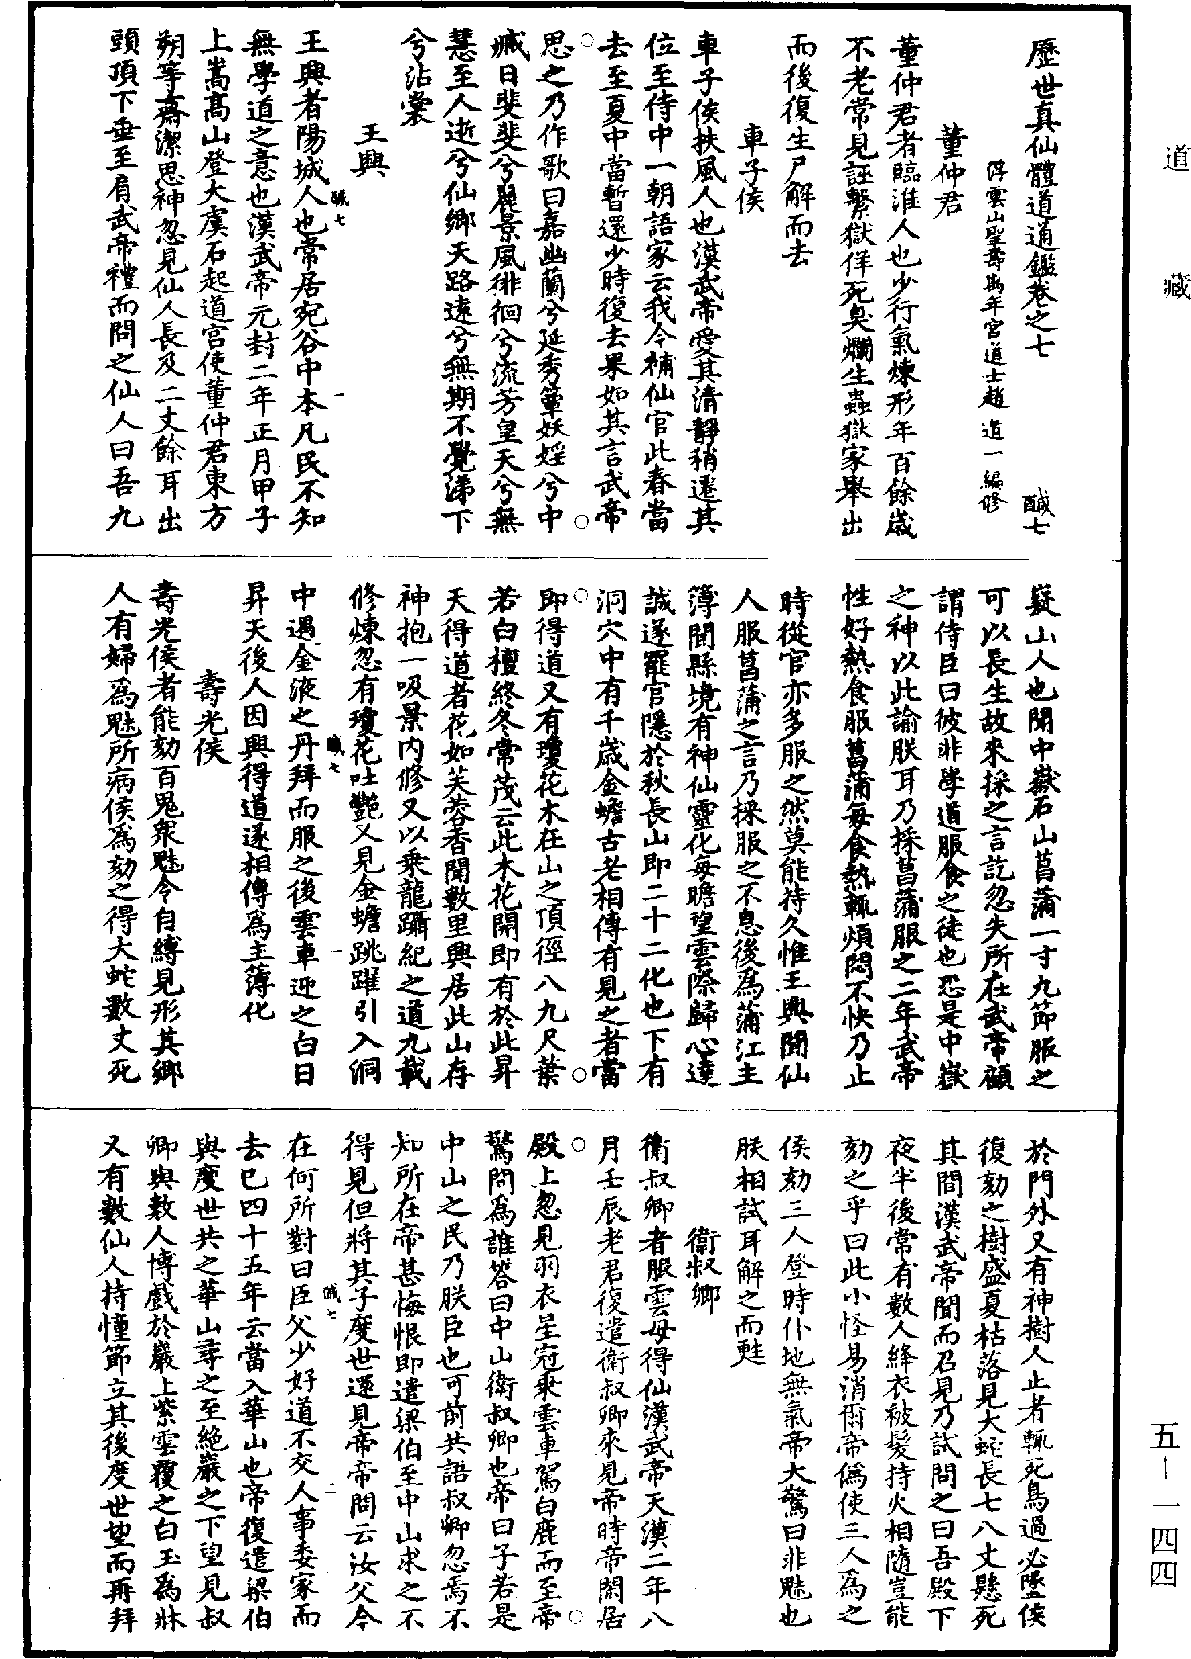 道藏
歷世真仙體道通鑑卷之七
鹹七
浮雲山聖壽萬年宮道士趙道一編修
董仲君
董仲君者臨淮人也少行氣煉形年百餘歲
不老常見誣繫獄佯死臭爛生蟲獄家舉出
而後復生尸解而去
車子侯
車子侯扶風人也漢武帝愛其清靜稍遷其
位至侍中一朝語家云我今補仙官此春當
去至夏中當暫還少時復去果如其言武帝
思之乃作歌曰嘉幽蘭兮延秀蕈妖婬兮中
㵩日斐斐兮麗景風徘徊兮流芳皇天兮無
慧至人逝兮仙鄉天路遠兮無期不覺涕下
兮沾裳
王興
王興者陽城人也常居宛谷中本凡民不知
無學道之意也漢武帝元封二年正月甲子
上嵩高山登大虞石起道宮使董仲君東方
朔等齋潔思神忽見仙人長及二丈餘耳出
頭頂下垂至肩武帝禮而問之仙人曰吾九
嶷山人也聞中嶽石山菖蒲一寸九節服之
可以長生故來採之言訖忽失所在武帝顧
謂侍臣曰彼非學道服食之徒也恐是中嶽
之神以此諭朕耳乃採菖蒲服之二年武帝
性好熱食服菖蒲每食熱輒煩悶不快乃止
時從官亦多服之然莫能持久惟王興聞仙
人服菖蒲之言乃採服之不息後為蒲江主
簿聞縣境有神仙靈化每瞻望雲際歸心達
誠遂罷官隱於秋長山即二十二化也下有
洞穴中有千歲金蟾古老相傳有見之者當
即得道又有瓊花木在山之頂徑八九尺葉
若白檀終冬常茂云此木花開即有於此昇
天得道者花如芙蓉香聞數里興居此山存
神抱一吸景內修又以乘龍躡紀之道九載
修煉忽有瓊花吐艷又見金蟾跳躍引入洞
中遇金液之丹拜而服之後雲車迎之白日
昇天後人因興得道遂相傳為主薄化
壽光侯
壽光侯者能劾百鬼衆魅令自縛見形其鄉
人有婦為魅所病侯為劾之得大蛇數丈死
於門外又有神樹人止者輒死鳥過必墜侯
復劾之樹盛夏枯落見大蛇長七八丈懸死
其間漢武帝聞而召見乃試問之曰吾殿下
夜半後常有數人絳衣被髮持火相隨豈能
劾之乎曰此小怪易消爾帝偽使三人為之
侯劾三人登時仆地無氣帝大驚曰非魅也
朕相試耳解之而甦
衛叔卿
衛叔卿者服雲母得仙漢武帝天漢二年八
月壬辰老君復遣衛叔卿來見帝時帝閑居
殿上忽見羽衣星冠乘雲車駕白鹿而至帝
驚問為誰答曰中山衛叔卿也帝曰子若是
中山之民乃朕臣也可前共語叔卿忽焉不
知所在帝甚悔恨即遣梁伯至中山求之不
得見但將其子度世還見帝帝問云汝父今
在何所對曰臣父少好道不交人事委家而
去已四十五年云當入華山也帝復遣梁伯
與度世共之華山尋之至絕巖之下望見叔
卿與數人博戲於巖上紫雲覆之白玉為牀
又有數仙人持幢節立其後度世望而再拜
五一一四四